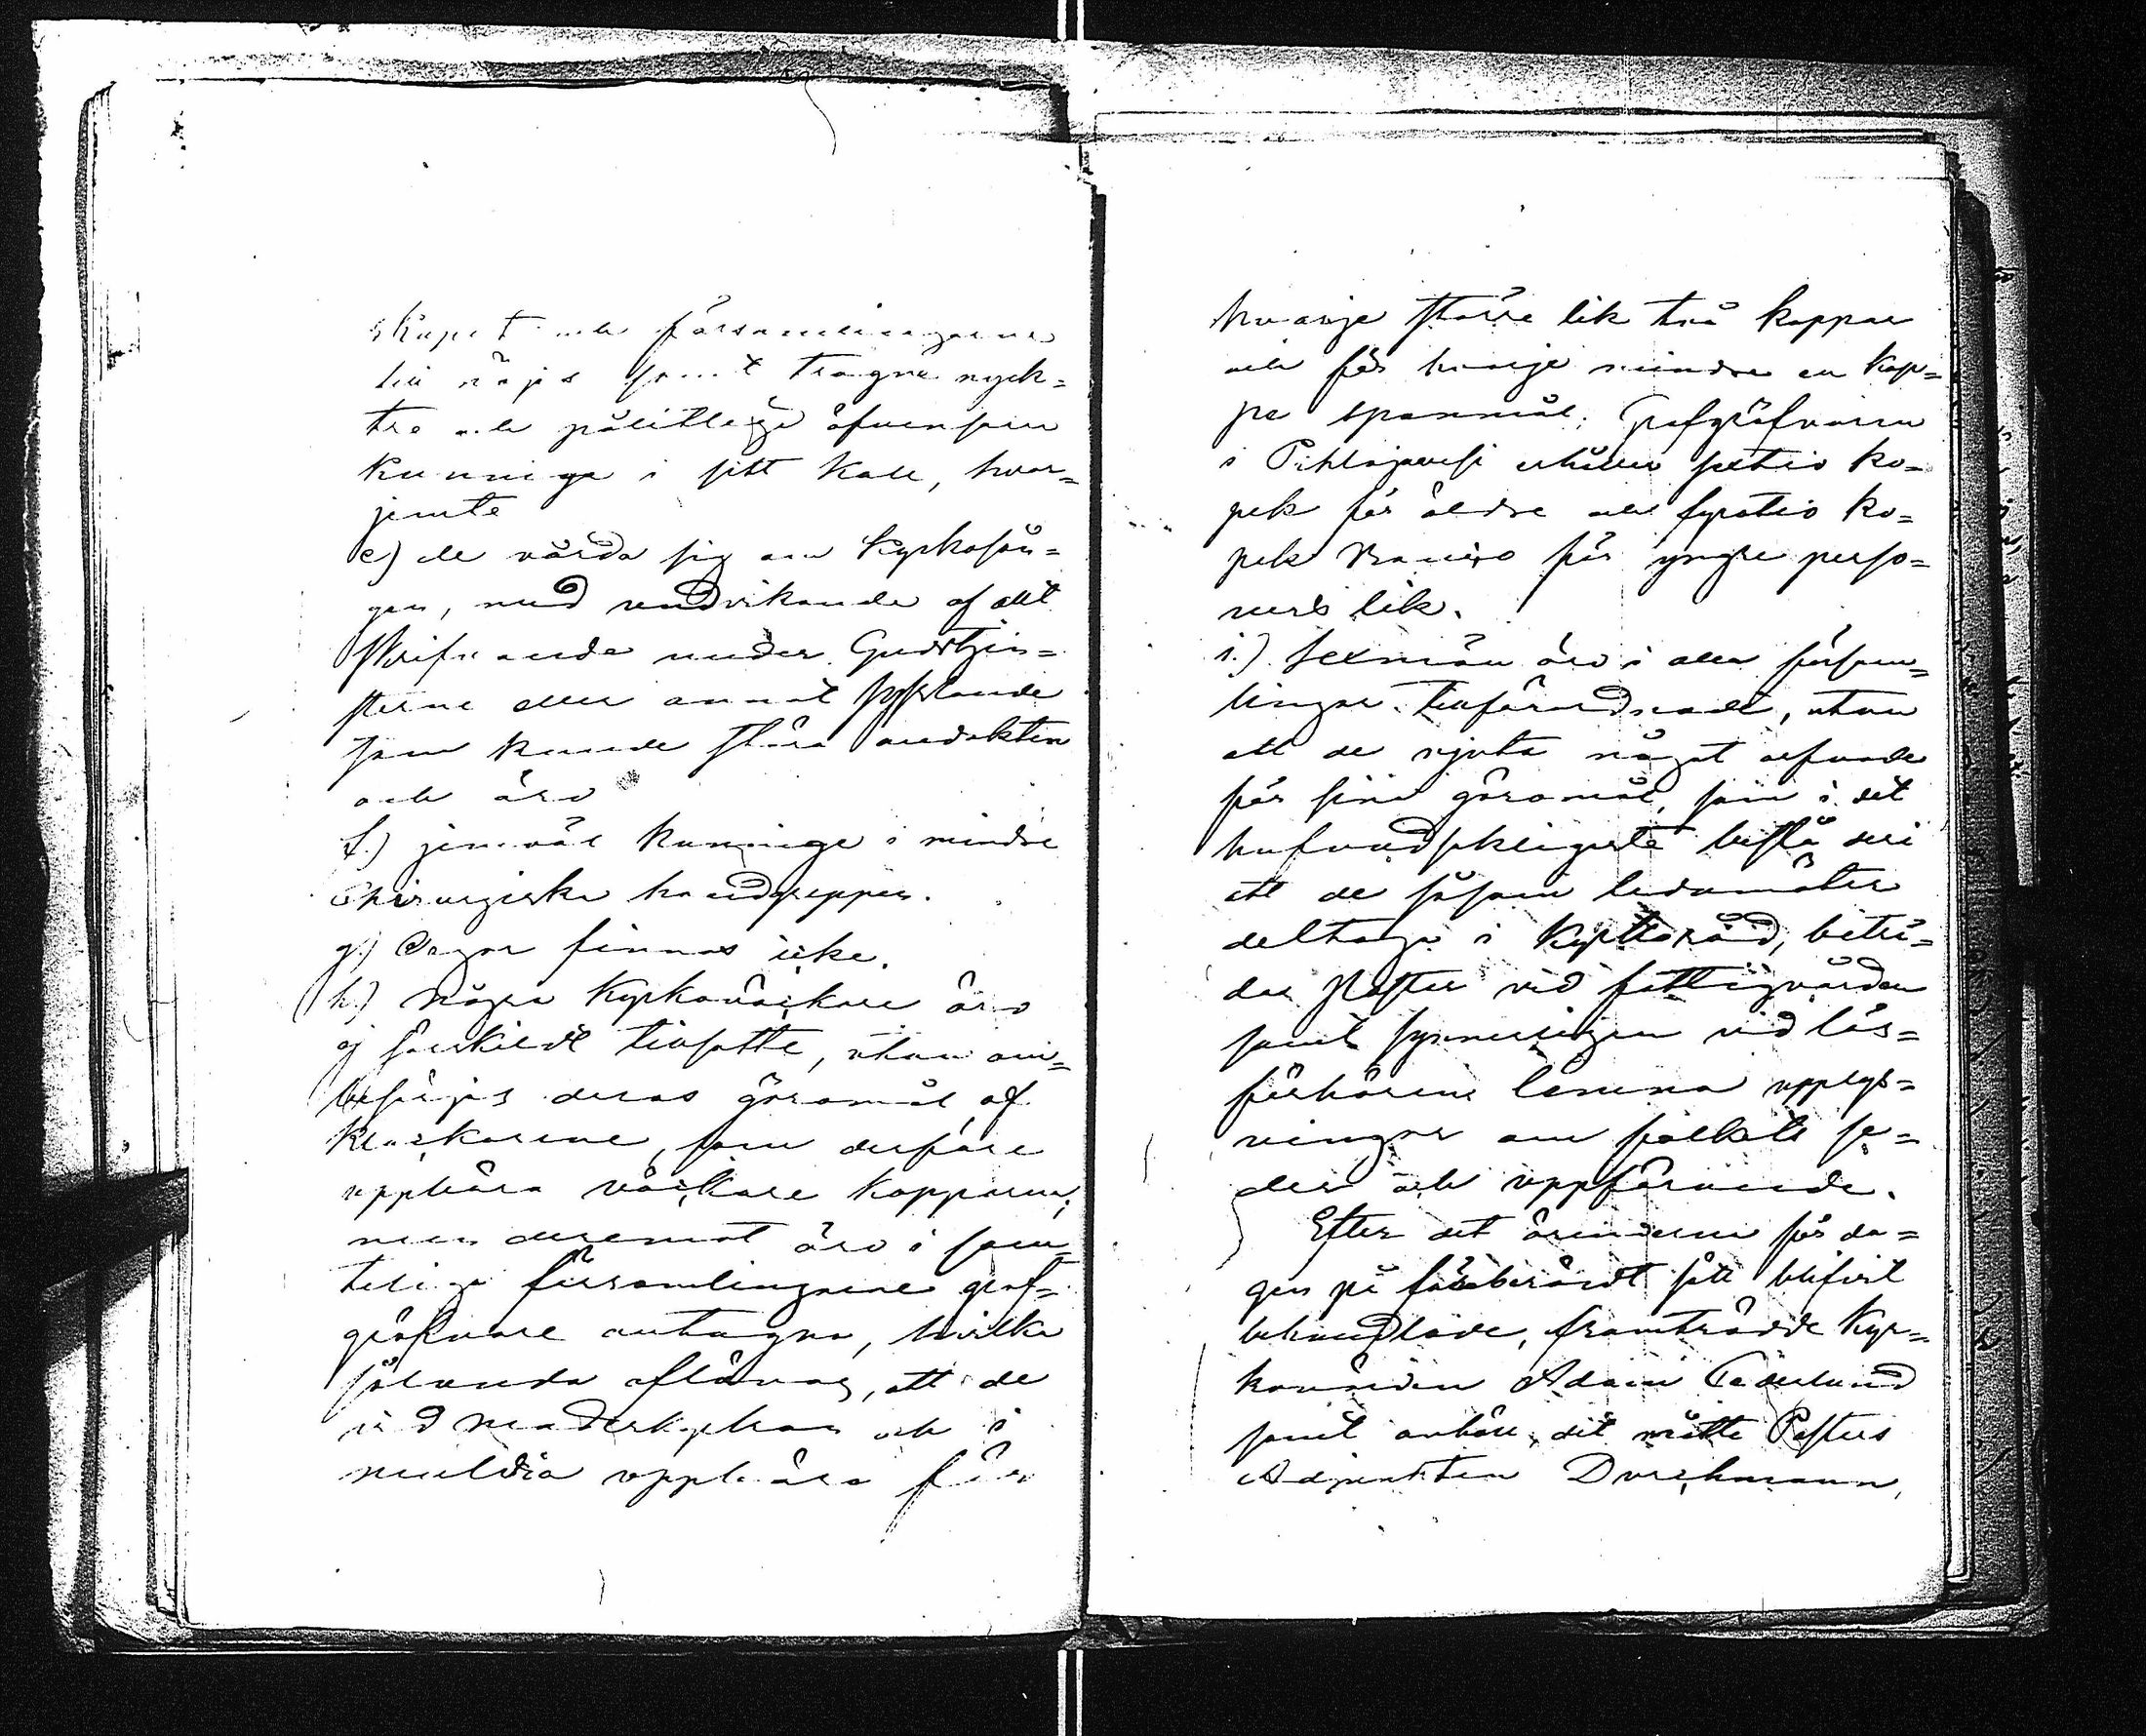 skapet och församlingarne
till nöjes samt trägne nyck=
tre och pålitlige äfvensom
kunnige i sitt kall, hvar=
jemte
e) de vårda sig om Kyrkosån=
gen, med undvikande af allt
skrifvande under Gudstjen=
sterne eller annat sysslande
som kunde störa andakten
och äro
f.) jemväl kunnige i mindre
Chirurgiska handgrepper.
g.) Orgor finnas icke.
h.) Några Kyrkoväckare äro
ej särskildt tillsatte, utan om=
besörjes deras göromål af
klockarene, som derföre
uppbära väckare kapparne;
men deremot äro i sam=
teliga församlingarne graf=
gräfvare antagna, hvilka
sålunda aflönas, att de
vid moderkyrkan och i
Multia uppbära för
hvarje större lik två kappar
och för hvarje mindre en kap=
pe spannmål; Grafgräfvaren
i Pihlajavesi erhåller sextio ko=
pek för äldre och fyratio ko=
pek Banco för yngre perso=
ners lik.
i.) Sexmän äro i alla försam=
lingar tillförordnade, utan
att de njuta något
för sine göromål, som i det
hufvudsakligaste bestå deri
att de såsom ledamöter
deltaga i Kyrkoråd, biträ=
da Pastor vid fattigvården
samt synnerligen vid läs=
förhören lemna upplys=
ningar om folkets se=
der och uppförande.
Efter det ärenderne för da=
gen på förberördt sätt blifvit
behandlade, framträdde Kyr=
kovärden Adam Cederlund
samt anhöll, det måtte Pastors
Adjunkten Durchmann,